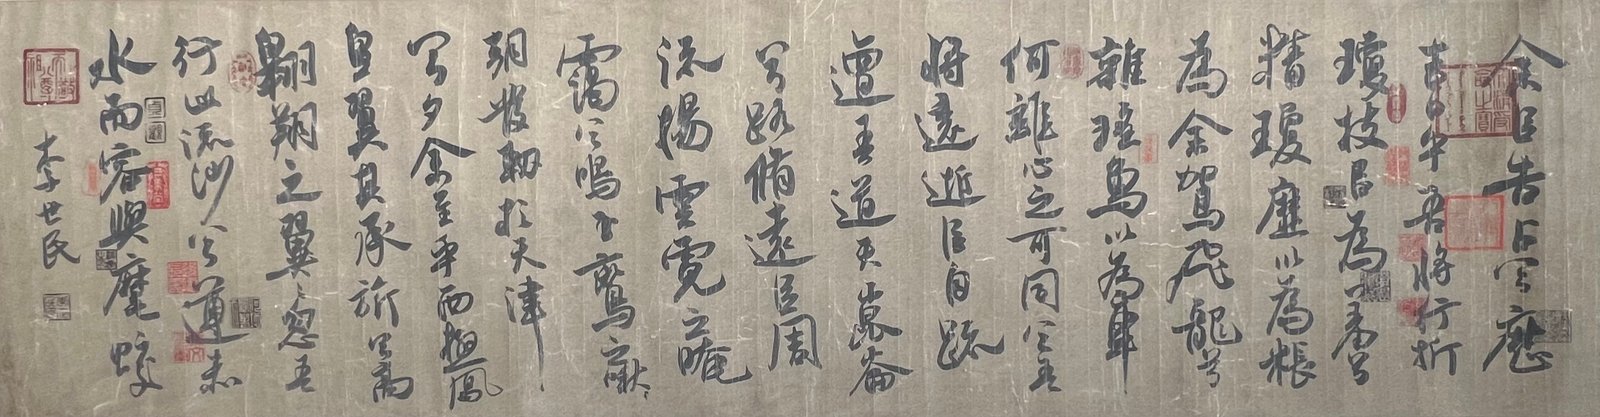 余以吉占兮歷
吉日乎吾將行折
瓊枝以為羞兮
精瓊靡以為粻
為余駕飛龍兮
雜瑤象以為車
何離心之可同兮吾
將遠逝以自疏
邅吾道夫崑崙
兮路脩遠以周
流揚雲霓之晻
藹兮鳴玉鸞之啾々
朝發軔於天津
兮夕余至乎西極鳳
皇翼其承旂兮高
翱翔之翼々忽吾
行此流沙兮遵赤
水而容與麾蛟
李世民